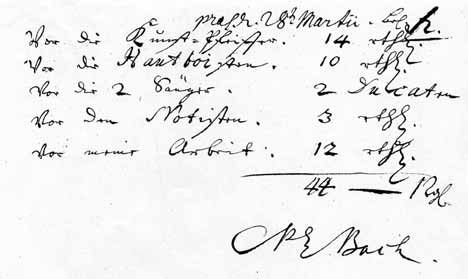 praes. d. 28 Martii.
Vor die Kunst-Pfeiffer. 14 rthl.
Vor die Hautboisten. 10 rthl.
Vor die 2 Sänger. 2 Ducaten
Vor den Notisten. 3 rthl.
Vor meine Arbeit. 12 rthl.
44 — Rthl.
Bach.